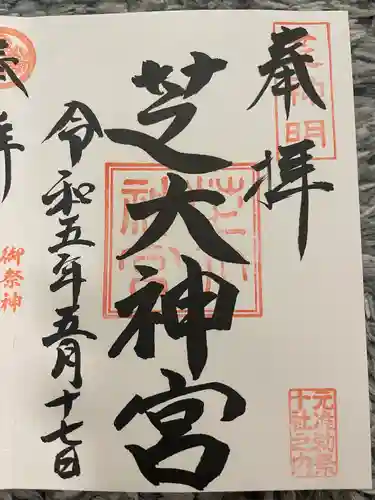 奉拝
芝神明
芝大神宮
元准勅祭
十社之内
令和五年五月十七日
御祭神
奉拝